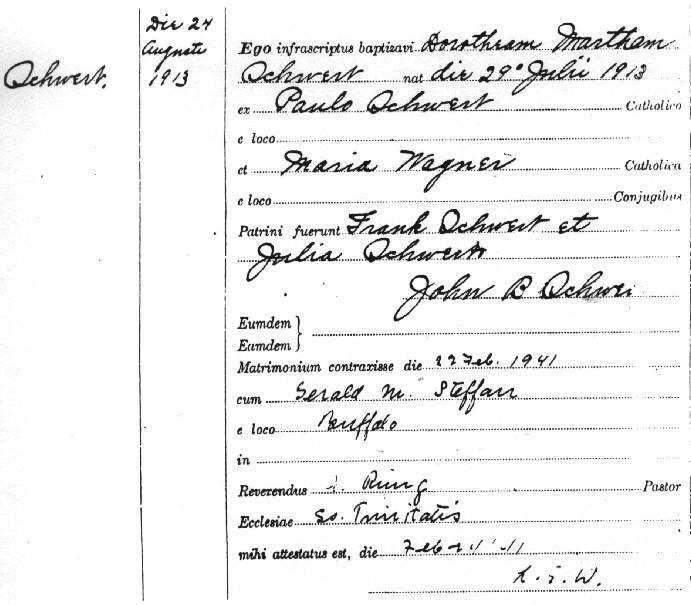 Schwert.
Die 24
Augusti
1913
Ego infrascriptus baptizavi Dorotheam Martham
Schwert nat die 29º Julii 1913
ex Paulo Schwert Catholico
e loco
et Maria Wagner Catholica
e loco Conjugibus
Patrini fuerunt Frank Schwert et
Julia Schwert
John B Schwer
Eumdem }
Eamdem }
Matrimonium contraxisse die 22 Feb. 1941
cum Gerald M. Steffan
e loco Buffalo
in
Reverendus Ring Pastor
Ecclesiae Ss. Trinitatis
mihi attestatus est, die Feb